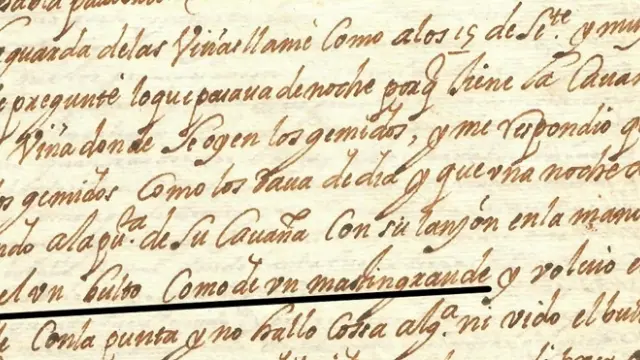 guarda delas Viñas llamè Como alos 15 de Se.te y muy
pregunté loque pasaua denoche porq̃ tiene la Caua
Viña donde Se oyen los gemidos, y me respondio q
gemidos Como los daua de dia y que vna noche
ndo ala pu.ta de Su Cauaña Con su lanzón en la mano
el vn bulto Como de vn mastin grande y voluio e
Con la punta y no hallo Cosa alg.a ni vido el bul